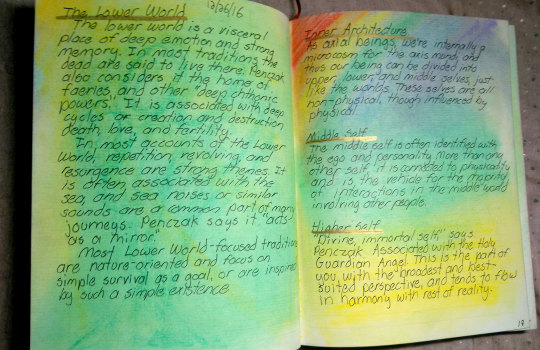 The Lower World 12/26/16
The lower world is a visceral
place of deep emotion and strong
memory. In most traditions, the
dead are said to live there. Penczak
also considers it the home of
faeries, and other "deep chthonic
powers." It is associated with deep
cycles or creation and destruction,
death, love, and fertility.
In most accounts of the Lower
World, repetition, revolving, and
resurgence are strong themes. It
is often associated with the
sea, and sea noises or similar
sounds are a common part of many
journeys. Penczak says it "acts
as a mirror."
Most Lower World-focused traditions
are nature-oriented and focus on
simple survival as a goal, or are inspired
by such a simple existence.
Inner Architecture
As axial beings, we're internally a
microcosm for the axis mundi, and
thus our being can be divided into
upper, lower, and middle selves, just
like the worlds. These selves are all
non-physical, though influenced by
physical.
Middle Self
The middle self is often identified with
the ego and personality. More than any
other self, it is connected to physicality
and is the vehicle for the majority
of interactions in the middle world
involving other people.
Higher Self
"Divine, immortal self," says
Penczak. Associated with the Holy
Guardian Angel. This is the part of
you with the "broadest and best-
suited perspective, and tends to flow
in harmony with rest of reality.